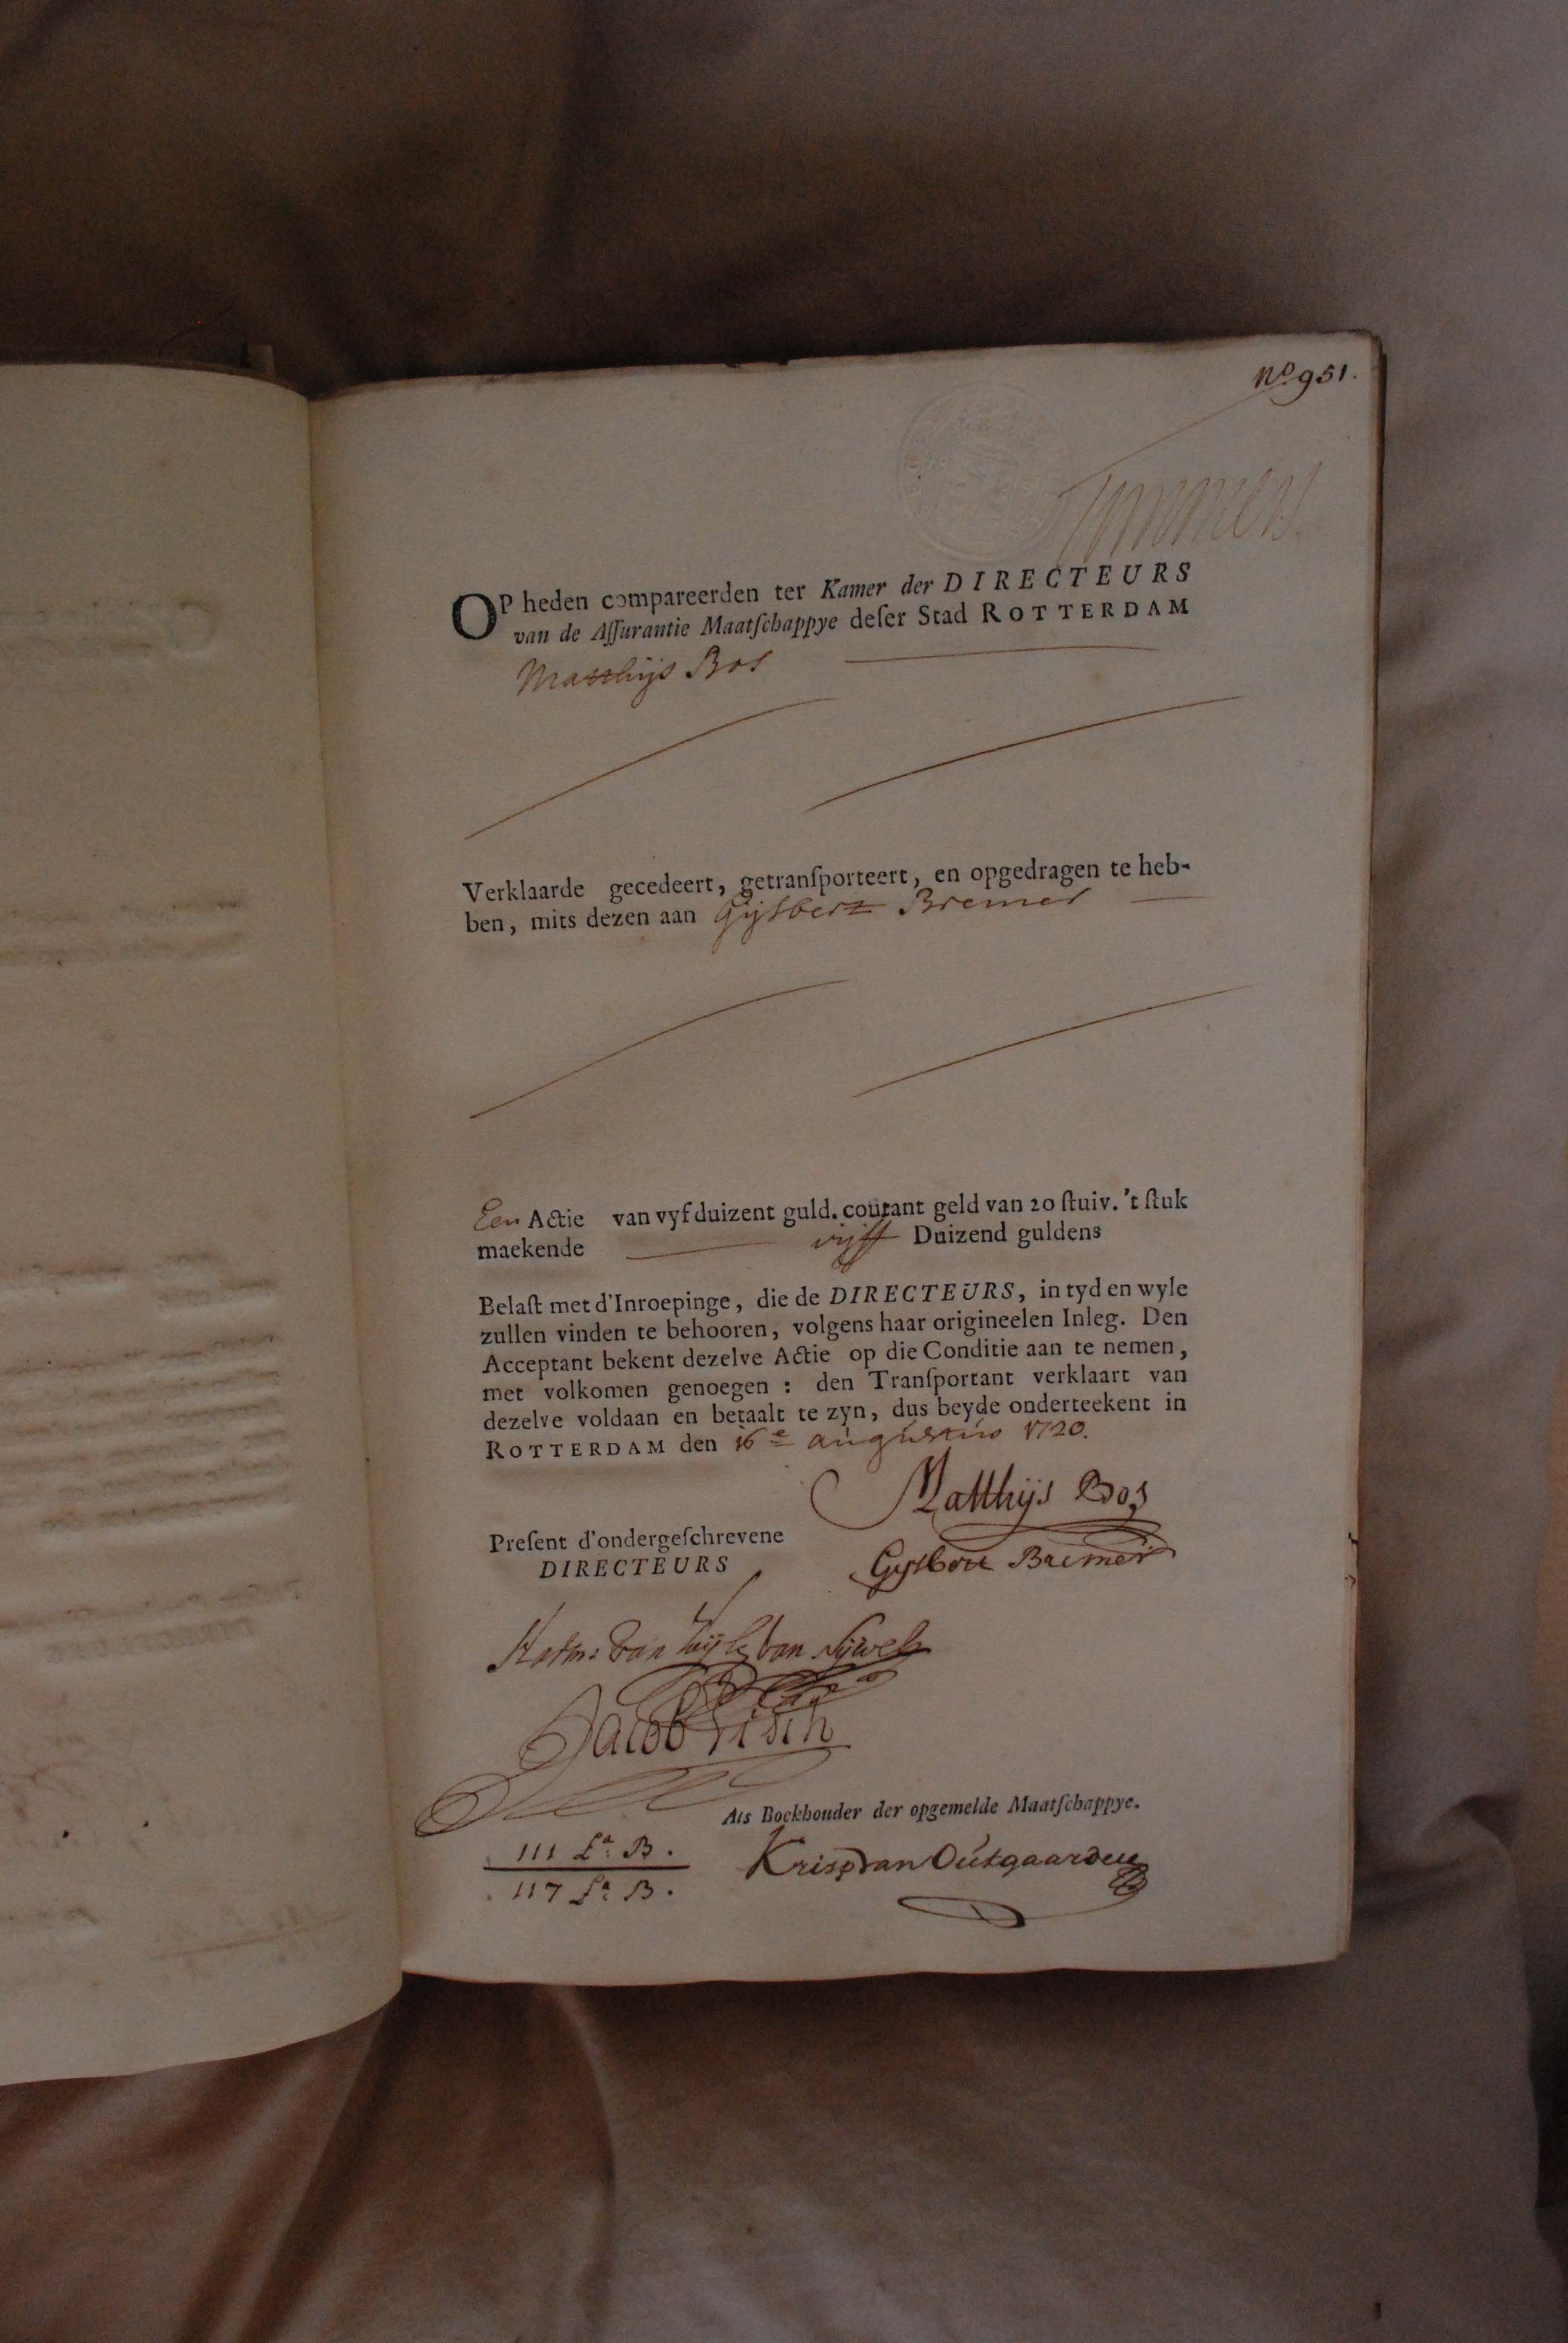 No 951.
OP heden compareerden ter Kamer der DIRECTEURS
van de Aſſurantie Maatſchappye deſer Stad ROTTERDAM
Matthijs Bos
Verklaarde gecedeert, getranſporteert, en opgedragen te heb-
ben, mits dezen aan Gijsbert Bremer
Een Actie van vyf duizent guld. courant geld van 20 ſtuiv. 't ſtuk
maekende vijff Duizend guldens
Belaſt met d'Inroepinge, die de DIRECTEURS, in tyd en wyle
zullen vinden te behooren, volgens haar origineelen Inleg. Den
Acceptant bekent dezelve Actie op die Conditie aan te nemen,
met volkomen genoegen : den Tranſportant verklaart van
dezelve voldaan en betaalt te zyn, dus beyde onderteekent in
ROTTERDAM den 16e augustus 1720.
Matthijs Bos
Preſent d'ondergeſchrevene
DIRECTEURS
Gysbert Bremer
Harm: van Zuijlen van Nijvelt
Jacob Visch
Als Boekhouder der opgemelde Maatſchappye.
111 La. B.
Krisp van Outgaarden
117 La. B.